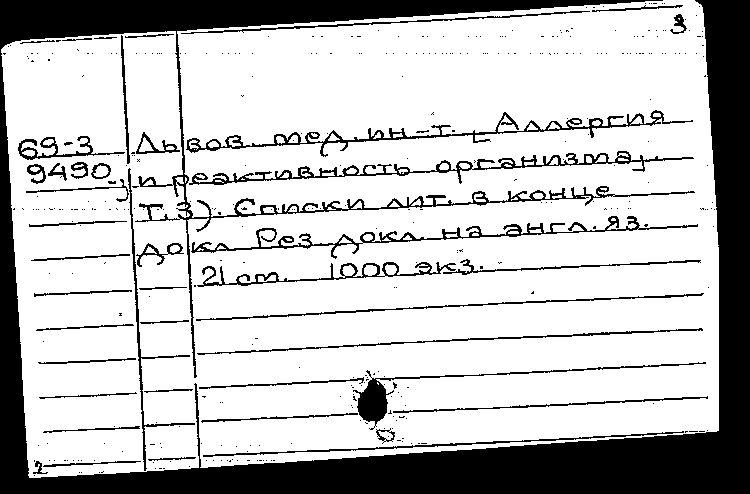 3
69-3 Львов. мед. ин-т. [Аллергия
9490 и реактивность организма,
Т. 3). Списки лит. в конце
докл. Рез. докл. на англ. яз.
21 cm. 1000 экз.
2